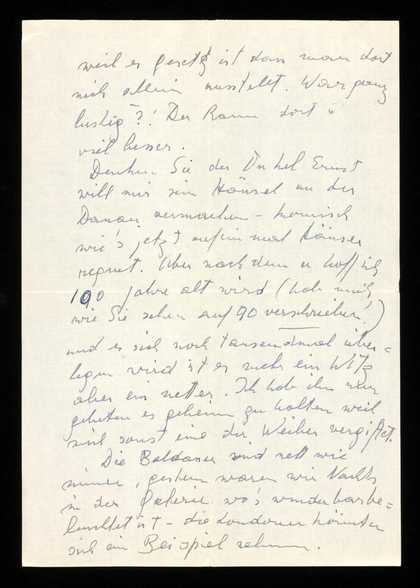 weil es gesetzt ist dass man dort
nich allein ausstellt. Wär ganz
lustig?! Der Raum dort is
viel besser.
Denken Sie der Onkel Ernst
will mir sein Häusel an der
Donau vermachen – komisch
wie's jetzt auf einmal Häuser
regnet. Aber nachdem er hoff ich
100 Jahre alt wird (hab mich
wie Sie sehen auf 90 verschrieben)
und es sich noch tausendmal über-
legen wird ist es mehr ein Witz
aber ein netter. Ich hab ihn nur
gebeten es geheim zu halten weil
mich sonst eine der Weiber vergiftet.
Die sind nett wie
immer, gestern waren wir Nachts
in der Galerie wo's wunderbar be-
leuchtet ist – die Londoner könnten
sich ein Beispiel nehmen.